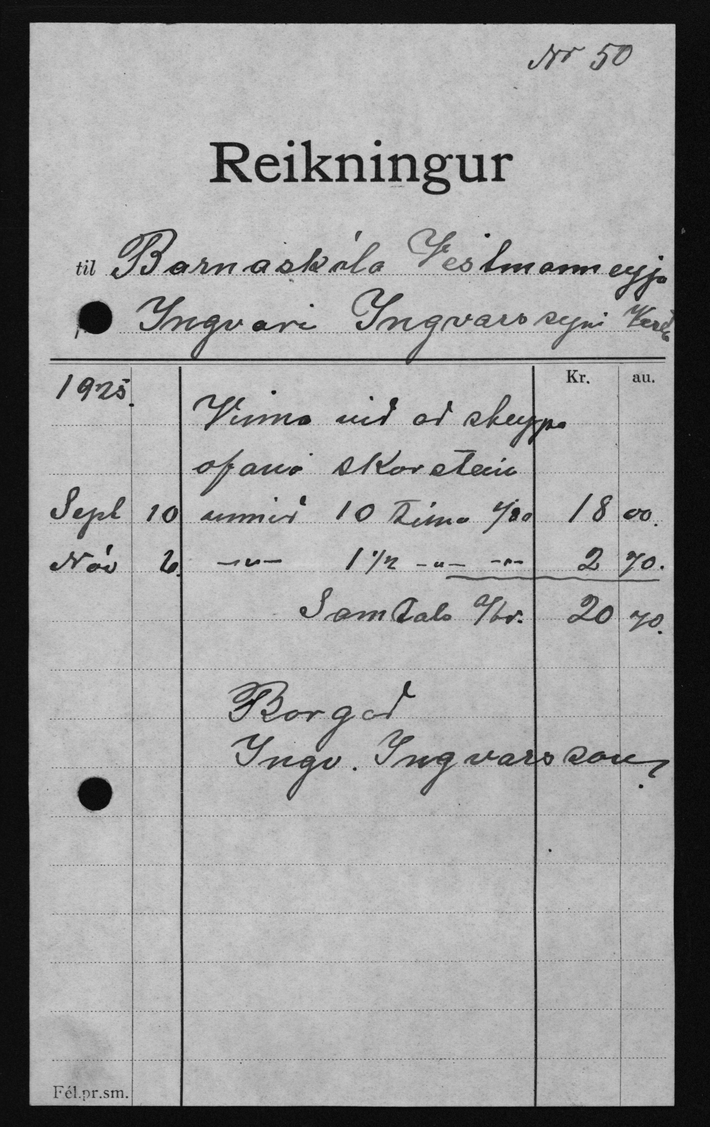 Nr 50
Reikningur
til Barnaskóla Vestmanneyja
Ingvari Ingvarssyni
1925. Kr. au.
Vinna við að steypa
ofaná skorstein
Sept 10 unnið 10 tíma 1/80 18 00.
Nóv 6 -"- 1 1/2 -"- -"- 2 70.
Samtals kr. 20 70.
Borgað
Ingv. Ingvarsson
Fél.pr.sm.